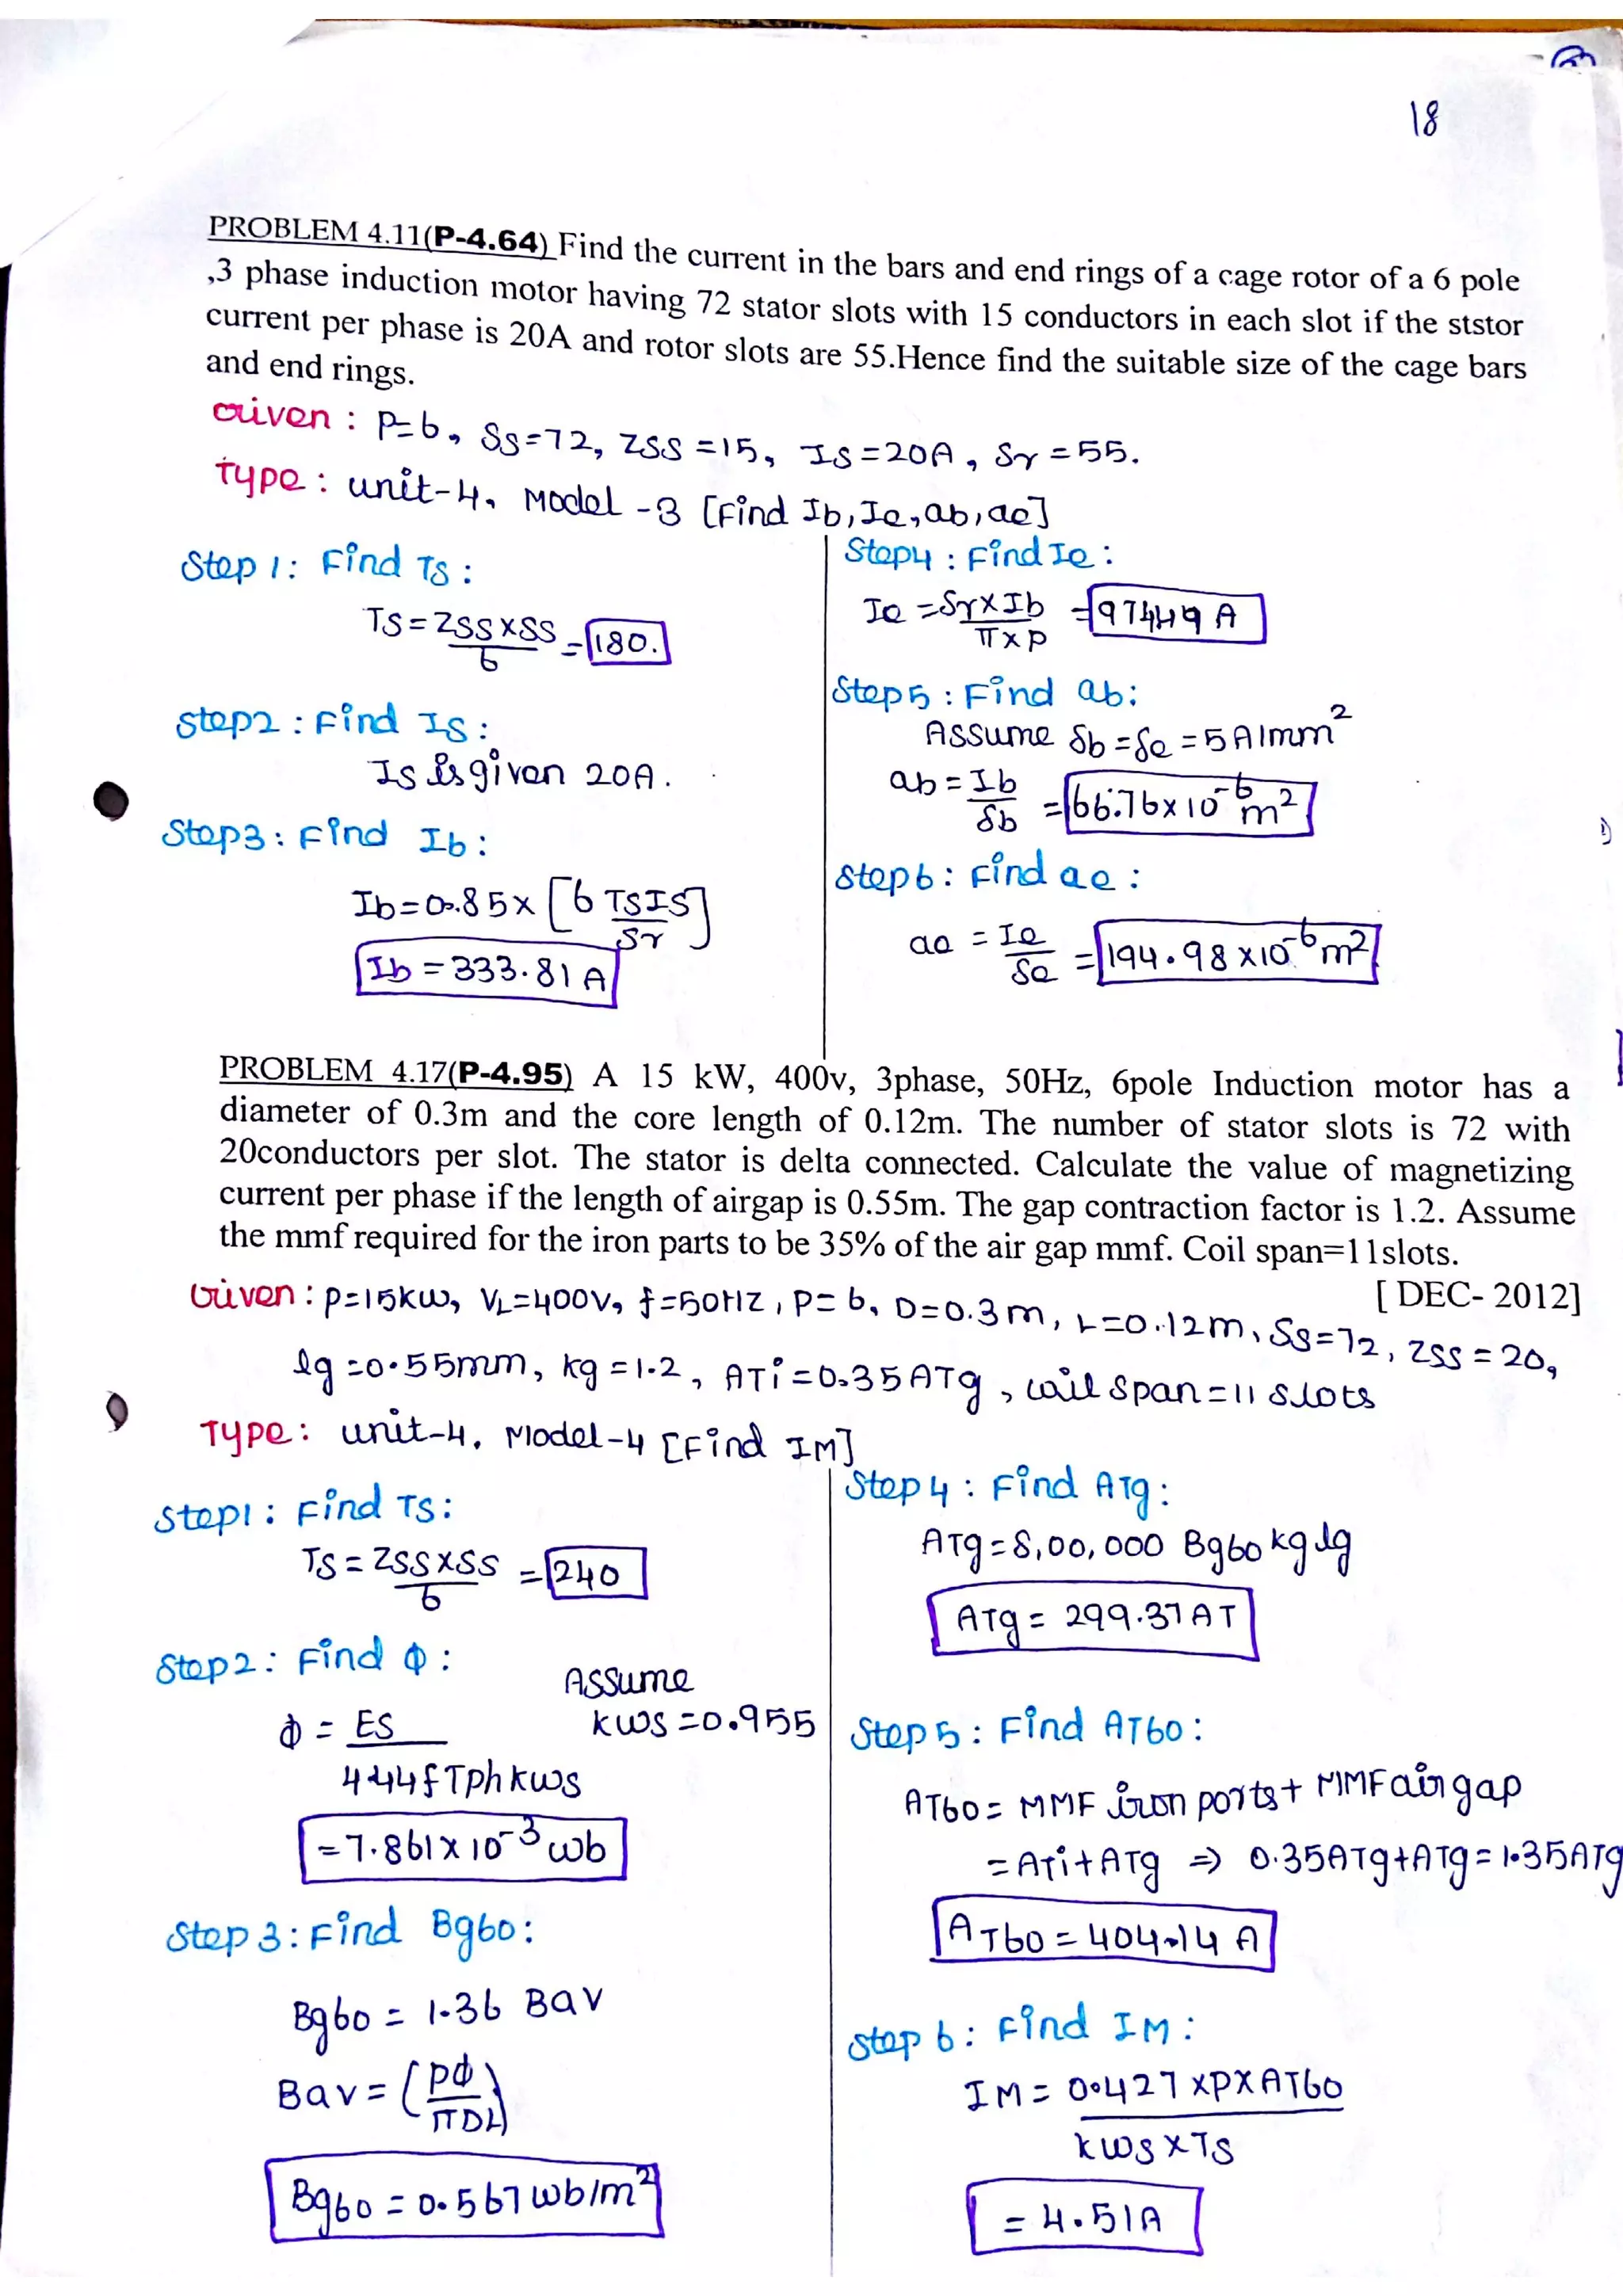 18
PROBLEM 4.11(P-4.64) Find the current in the bars and end rings of a cage rotor of a 6 pole
,3 phase induction motor having 72 stator slots with 15 conductors in each slot if the ststor
current per phase is 20A and rotor slots are 55.Hence find the suitable size of the cage bars
and end rings.
Given : P=6, Ss=72, ZSS =15, IS =20A, Sr =55.
Type : unit-4, Model -3 [Find Ib, Ie, ab, ae]
Step 1: Find TS :
TS = ZSS×SS / 6 = 180.
Step2 : Find IS :
Is is given 20A.
Step3 : Find Ib :
Ib = 0.85× [6 TSIS / Sr]
Ib = 333.81 A
Step4 : Find Ie :
Ie = Sr×Ib / π×P = 974.49 A
Step5 : Find ab:
Assume δb = δe = 5A/mm²
ab = Ib / δb = 66.76×10⁻⁶ m²
Step6 : Find ae :
ae = Ie / δe = 194.98 ×10⁻⁶ m²
PROBLEM 4.17(P-4.95) A 15 kW, 400v, 3phase, 50Hz, 6pole Induction motor has a
diameter of 0.3m and the core length of 0.12m. The number of stator slots is 72 with
20conductors per slot. The stator is delta connected. Calculate the value of magnetizing
current per phase if the length of airgap is 0.55m. The gap contraction factor is 1.2. Assume
the mmf required for the iron parts to be 35% of the air gap mmf. Coil span=11slots.
[ DEC- 2012]
Given : P=15kW, VL=400V, f=50HZ, P= 6, D=0.3m, L=0.12m, SS=72, ZSS = 20,
lg =0.55mm, kg =1.2, ATi =0.35ATg, coil span =11 slots
Type : unit-4, Model-4 [Find IM]
Step1 : Find TS:
TS = ZSS×SS / 6 = 240
Step2 : Find Φ :
Assume
kws =0.955
Φ = ES / 4.44fTph kws
=7.861×10⁻³ wb
Step 3 : Find Bg60 :
Bg60 = 1.36 Bav
Bav = (PΦ / πDL)
Bg60 = 0.567 wb/m²
Step 4 : Find ATg :
ATg = 8,00,000 Bg60 kg lg
ATg = 299.37 AT
Step 5 : Find AT60 :
AT60 = MMF iron parts + MMF air gap
= ATi + ATg ⇒ 0.35ATg+ATg = 1.35ATg
AT60 = 404.14 A
Step 6 : Find IM :
IM = 0.427 ×P×AT60 / kws×TS
= 4.51A